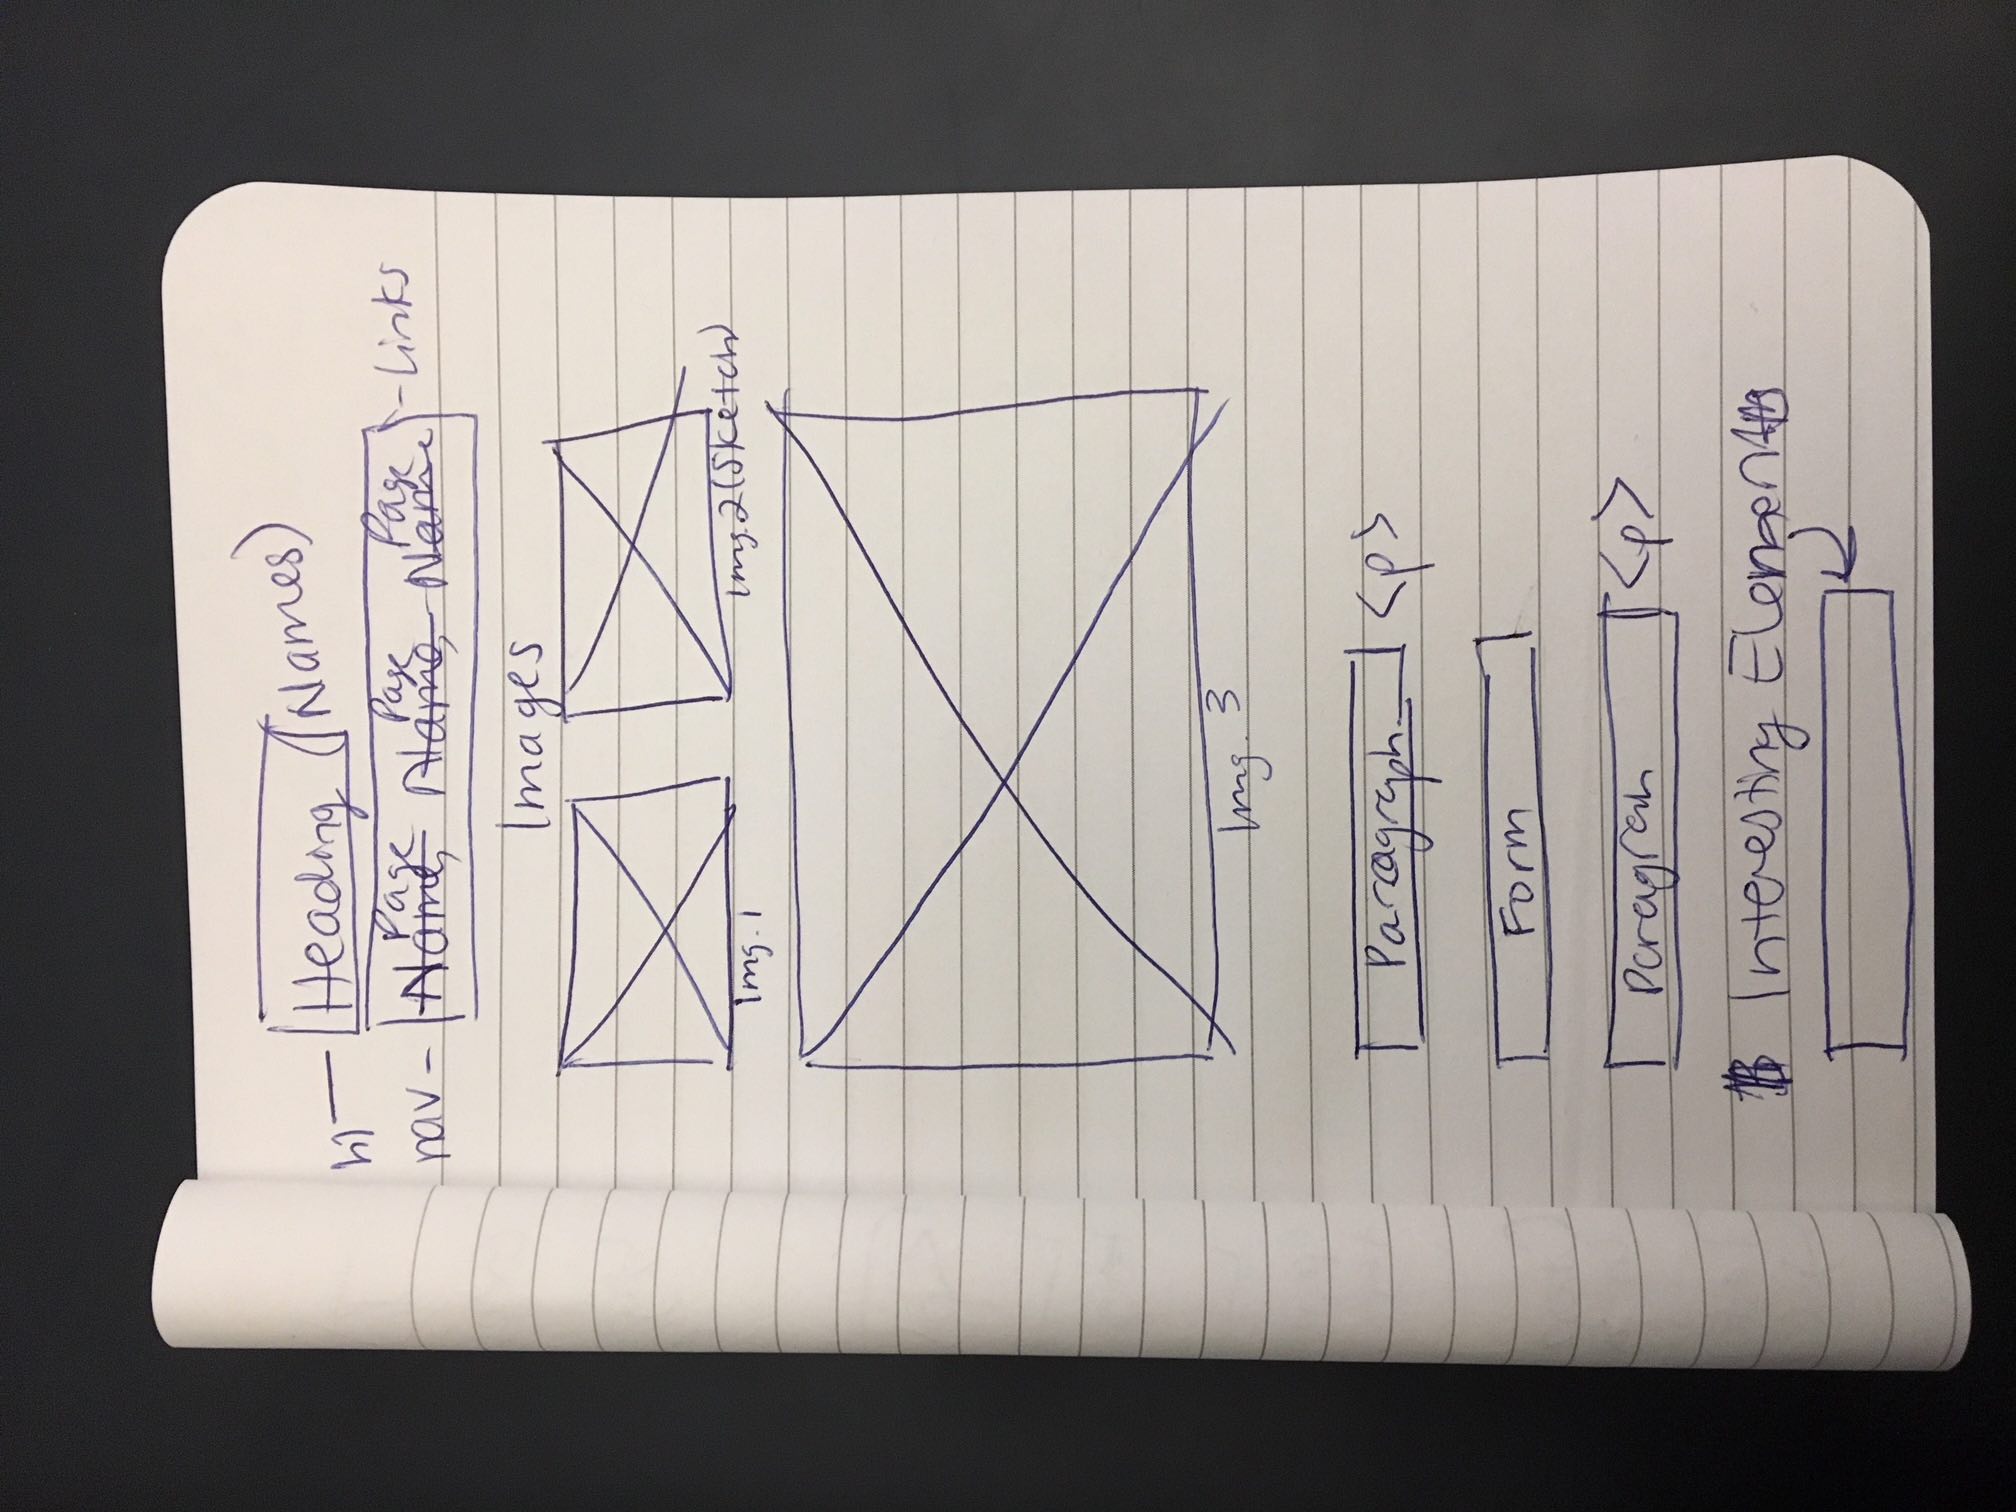 h1 — Heading (Names)
Page Page Page
nav - Name, Name, Name - Links
Images
Img. 1 Img. 2 (Sketch)
Img. 3
Paragraph <p>
Form
Paragrah <p>
Interesting Element